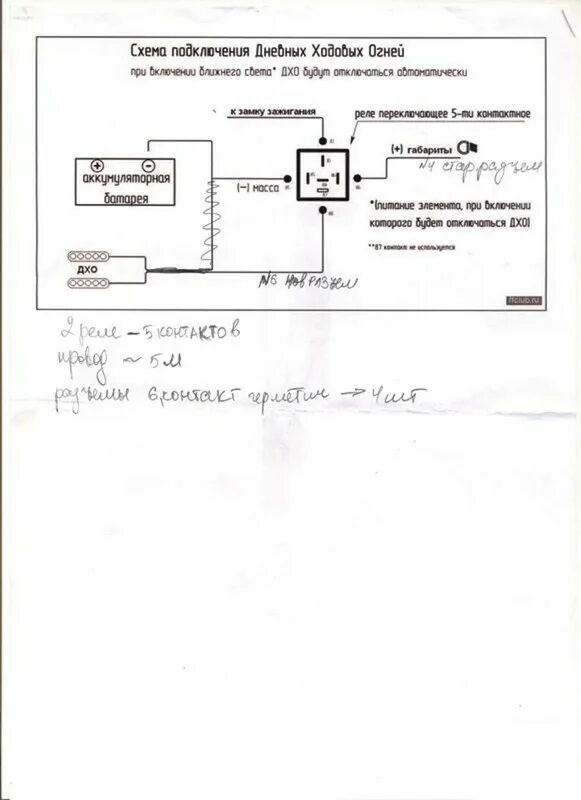 Схема подключения Дневных Ходовых Огней
при включении ближнего света* ДХО будут отключаться автоматически
к замку зажигания
реле переключающее 5-ти контактное
(+) габариты
№4 стар разъем
аккумуляторная
батарея
(-) масса
*(питание элемента, при включении
которого будет отключаться ДХО)
**87 контакт не используется
ДХО
№6 нов разъем
2 реле - 5 контактов
провод ~ 5 м
разъемы 6 контакт герметич → 4 шт